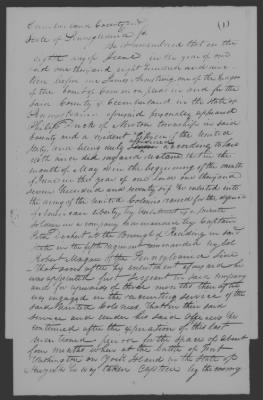 Cumberland County and
State of Pennsylvania ss (1)
Be it remembered that on the
eighth day of June in the year of our
Lord one thousand eight hundred and nineteen
before me James Armstrong, one of the Judges
of the Court of Common pleas in and for the
said County of Cumberland in the State of
Pennsylvania aforesaid personally appeared
Philip of Newton township in said
County and a resident Citizen of the United
States, and being duly affirmed according to law
did on his declare that in the
month of May or in the beginning of the month
of June in the year of our Lord one thousand
seven hundred and seventy six he enlisted into
the army of the United Colonies raised for the defence
of American liberty, by enlistment of a
in a company commanded by Captain
at the Borough of Reading in said
State in the fifth regiment commanded by Col
Robert Magaw of the Pennsylvania Line
That soon after his enlistment aforesaid he
was appointed first Sergeant in said Company
and for upwards of three months thereafter
was engaged in the recruiting service of the
said United Colonies, That in the said
service and under his said Officers he
continued after the expiration of this last
mentioned period for the space of about
four months when at the battle of Fort
Washington on York Island in the State of
he was taken Captive by the enemy